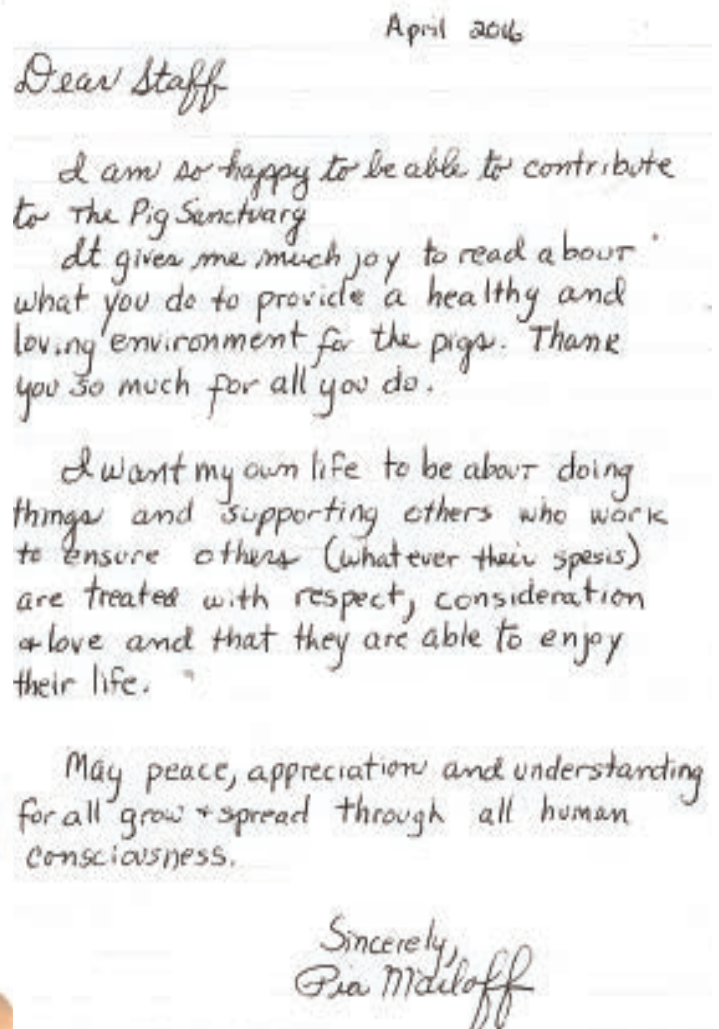 April 2016
Dear Staff
I am so happy to be able to contribute
to The Pig Sanctuary
It gives me much joy to read about
what you do to provide a healthy and
loving environment for the pigs. Thank
you so much for all you do.
I want my own life to be about doing
things and supporting others who work
to ensure others (whatever their spesis)
are treated with respect, consideration
& love and that they are able to enjoy
their life.
May peace, appreciation and understanding
for all grow + spread through all human
consciousness.
Sincerely,
Pia